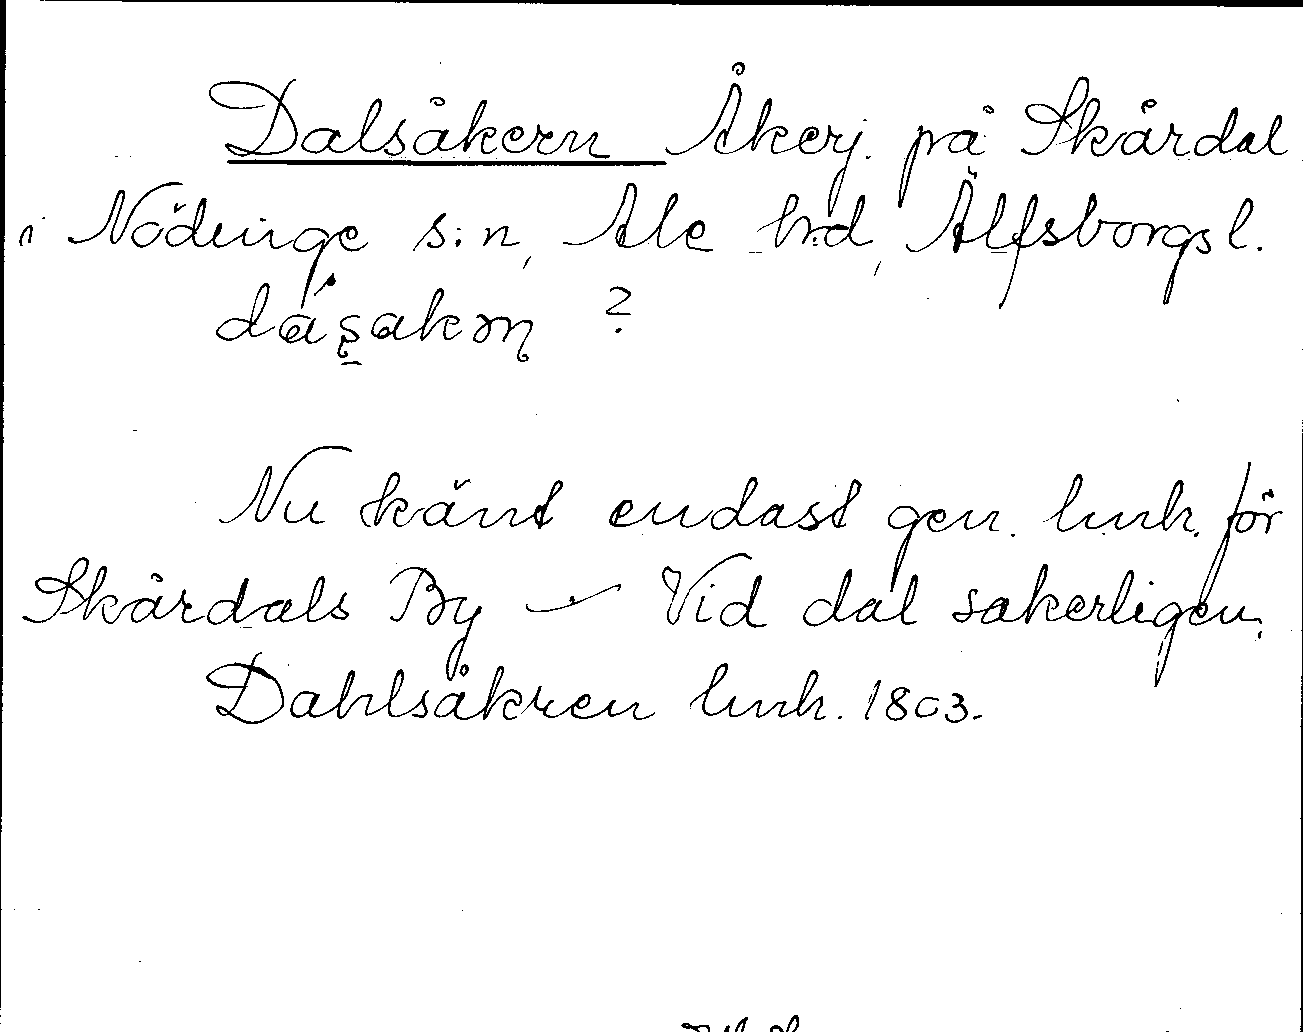 Dalsåkern Åkerj. på Skårdal
i Nödinge s:n, Ale hrd, Älfsborgs l.
dásakọn ?
Nu känt endast gen. lmh. för
Skårdals By – Vid dal sakerligen.
Dahlsåkren lmh. 1803.